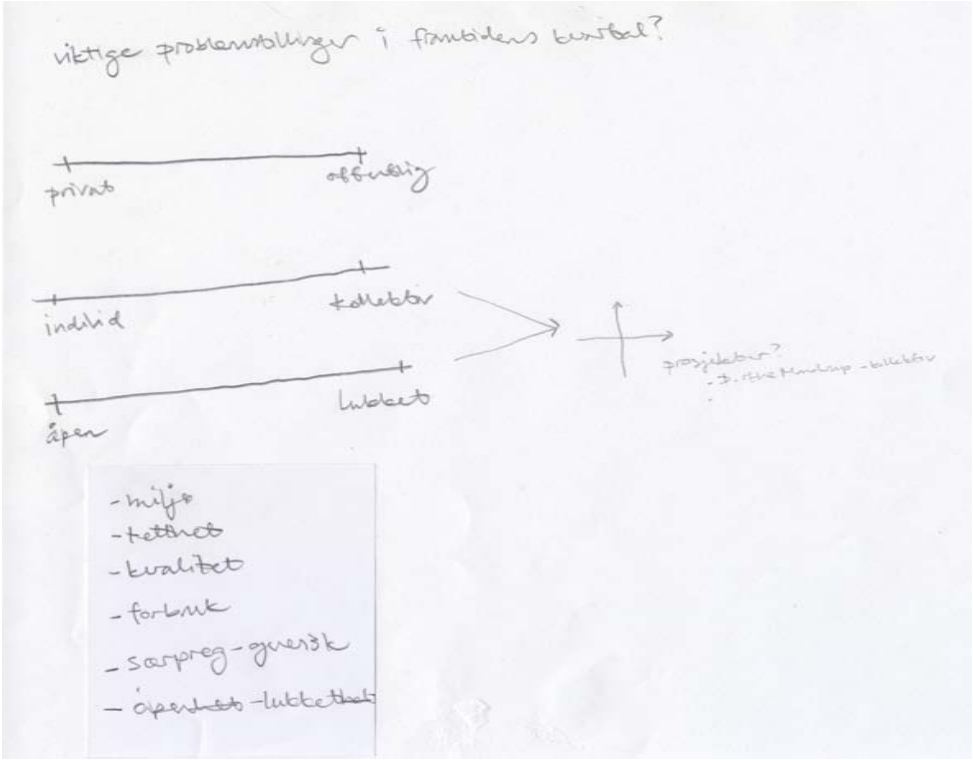 viktige problemstillinger i framtidens kvartal?
privat offentlig
individ kollektiv
åpen lukket
prosjekter?
- kollektiv
- miljø
- tetthet
- kvalitet
- forbruk
- særpreg - generisk
- åpenhet - lukkethet